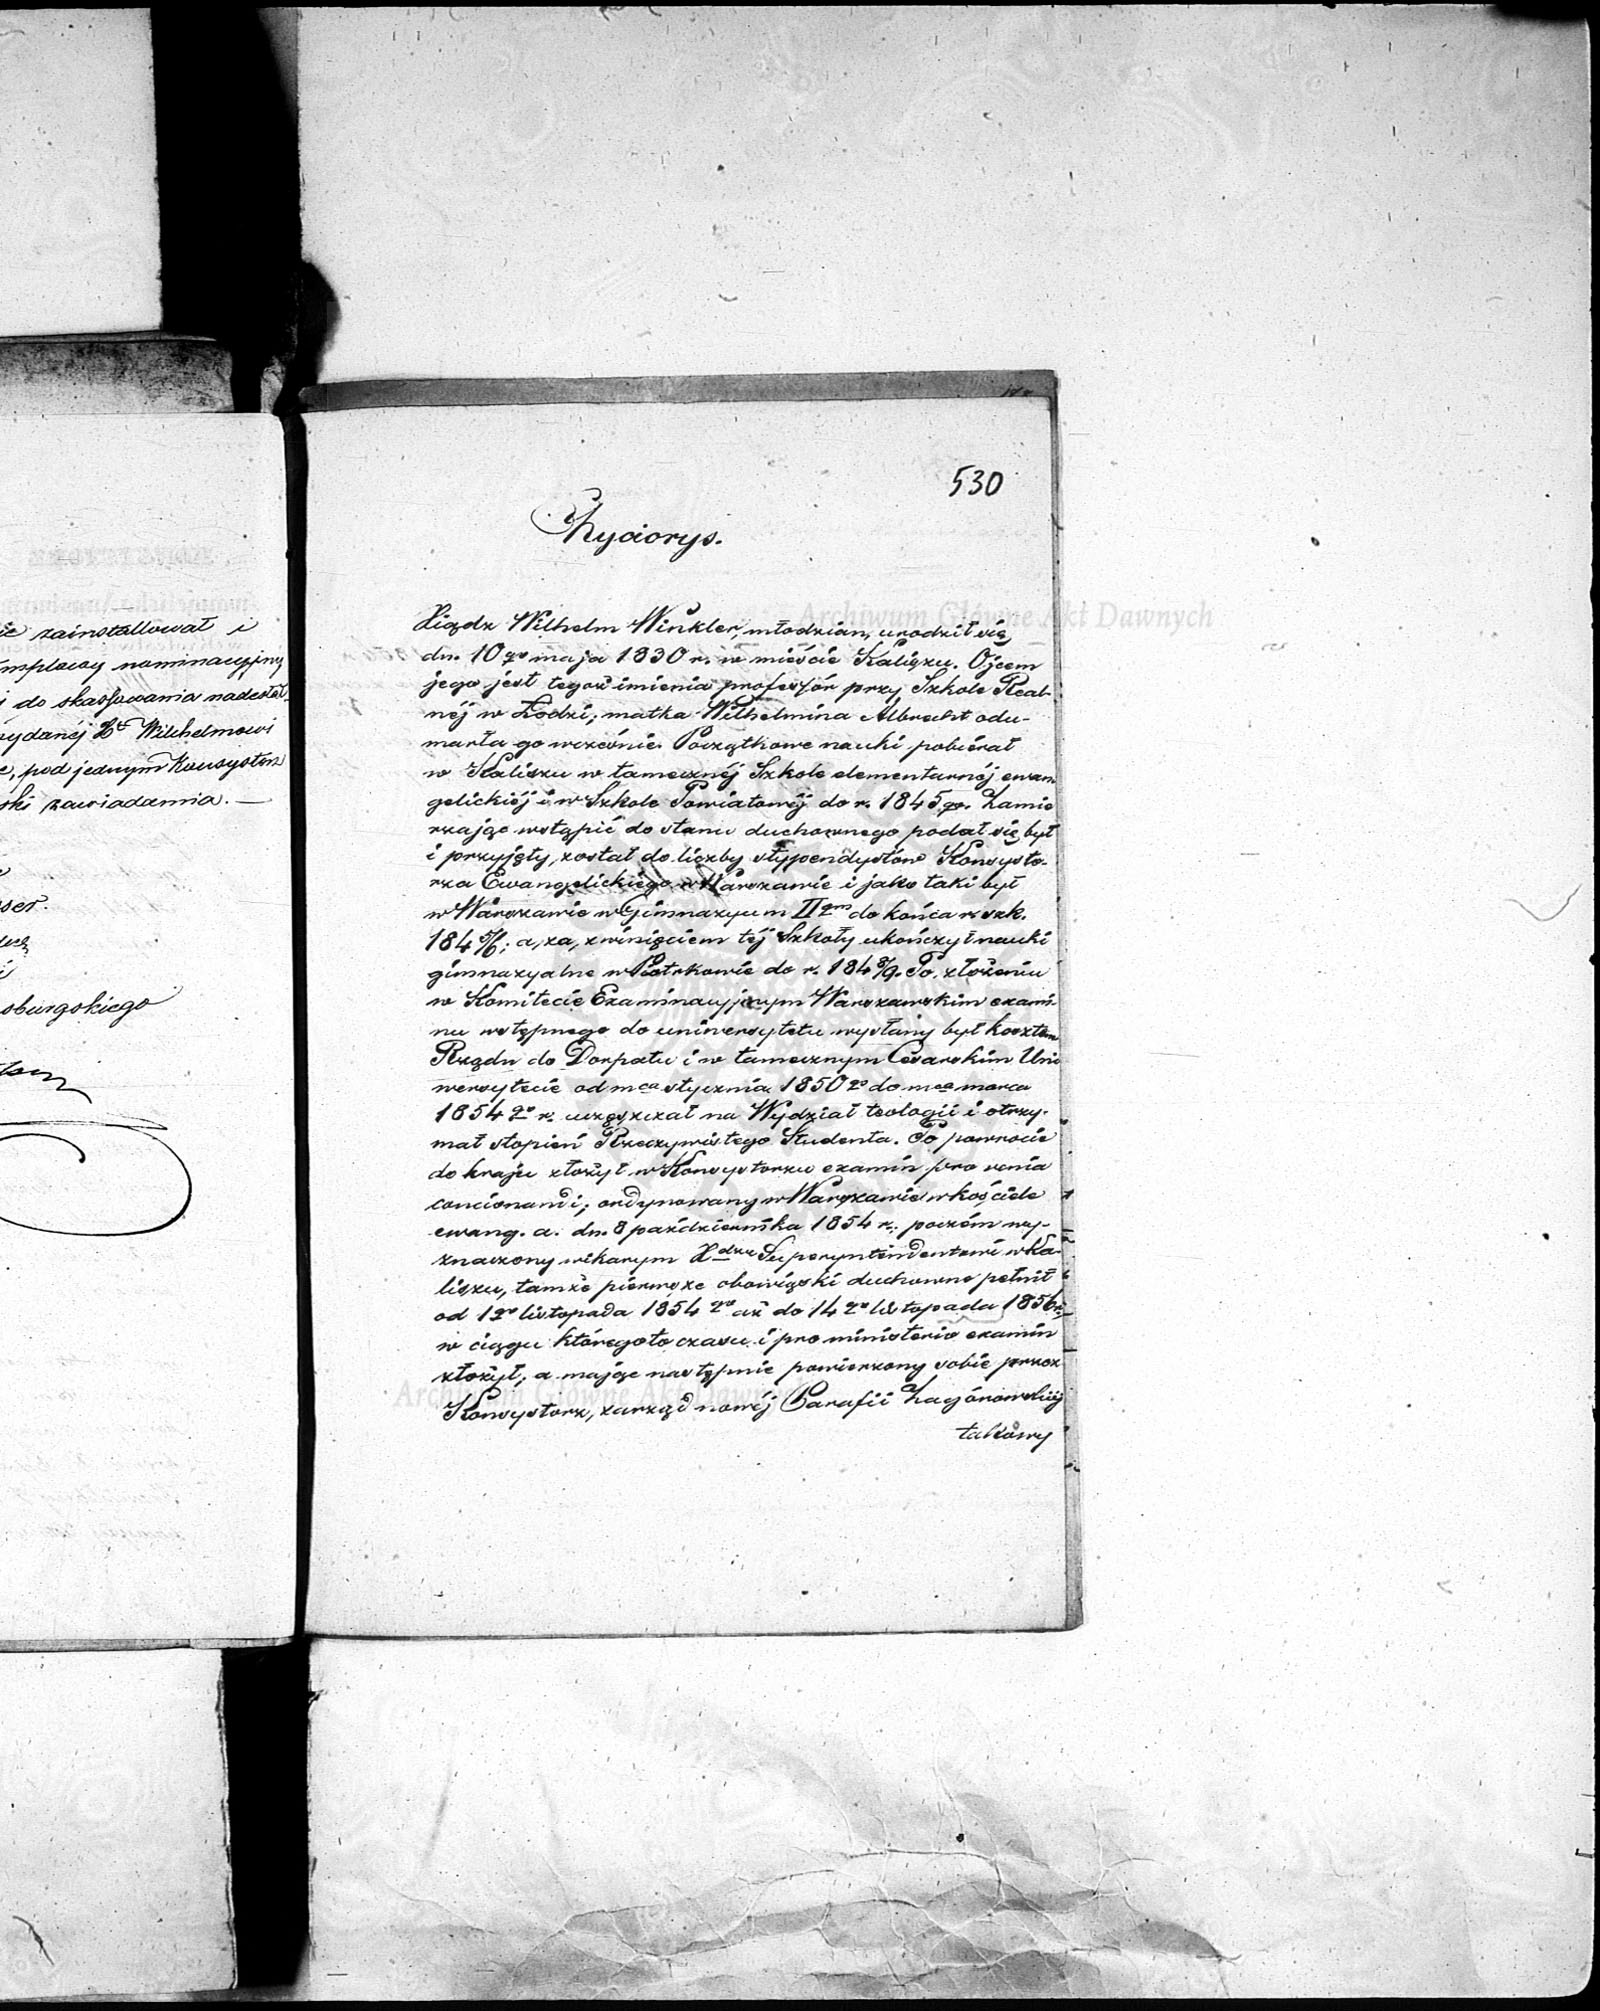 ie zainstallował i
implacay nominacyjny
i do skassowania nadesłał
wydanéj X. Wilhelmowi
e, pod jednym Konsystorz
ski zawiadamia. —
sburgskiego
530
Życiorys.
Xiądz Wilhelm Winkler, młodzian, urodził się
dn. 10go maja 1830 r. w mieście Kaliszu. Ojcem
jego jest tegoż imienia professór przy Szkole Real-
néj w Łodzi; matka Wilhelmina Albrecht odu-
marła go wcześnie. Początkowe nauki pobiérał
w Kaliszu w tamecznéj Szkole elementarnéj ewan
gelickiéj i w Szkole Powiatowéj do r. 1845go. Zamie
rzając wstąpić do stanu duchownego podał się był
i przyjęty został do liczby stypendystów Konsysto-
rza Ewangelickiégo w Warszawie i jako taki był
w Warszawie w Gimnazyum IIgm do końca r. szk.
1845/6; a, za zwinięciem téj Szkoły ukończył nauki
gimnazyalne w Piotrkowie do r. 1848/9. Po złożeniu
w Komitecie Examinacyjnym Warszawskim exami-
nu wstępnego do uniwersytetu wysłany był kosztem
Rządu do Dorpatu i w tamecznym Cesarskim Uni
wersytecie od mca stycznia 1850go do mca marca
1854go r. uczęszczał na Wydział teologii i otrzy-
mał stopień Rzeczywistego Studenta. Po powrocie
do kraju złożył w Konsystorzu examin pro venia
concionandi; ordynowany w Warszawie w kościele
ewang. a. dn. 8 października 1854 r. poczém wy-
znaczony wikarym Xdzu Superyntendentowi w Ka-
liszu, tamże pierwsze obowiązki duchowne pełnił
od 1go listopada 1854go aż do 14go listopada 1856 r.,
w ciągu któregoto czasu i pro ministerio examin
złożył; a mając następnie powierzony sobie przez
Konsystorz, zarząd nowéj Parafii Zagórowskiéj
takowy
Archiwum Główne Akt Dawnych
Archiwum Główne Akt Dawnych